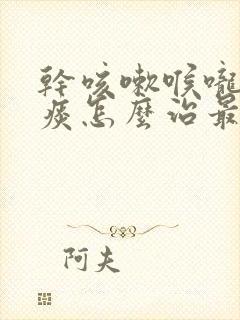 幹咳嗽喉嚨
痰怎麼治最
阿夫